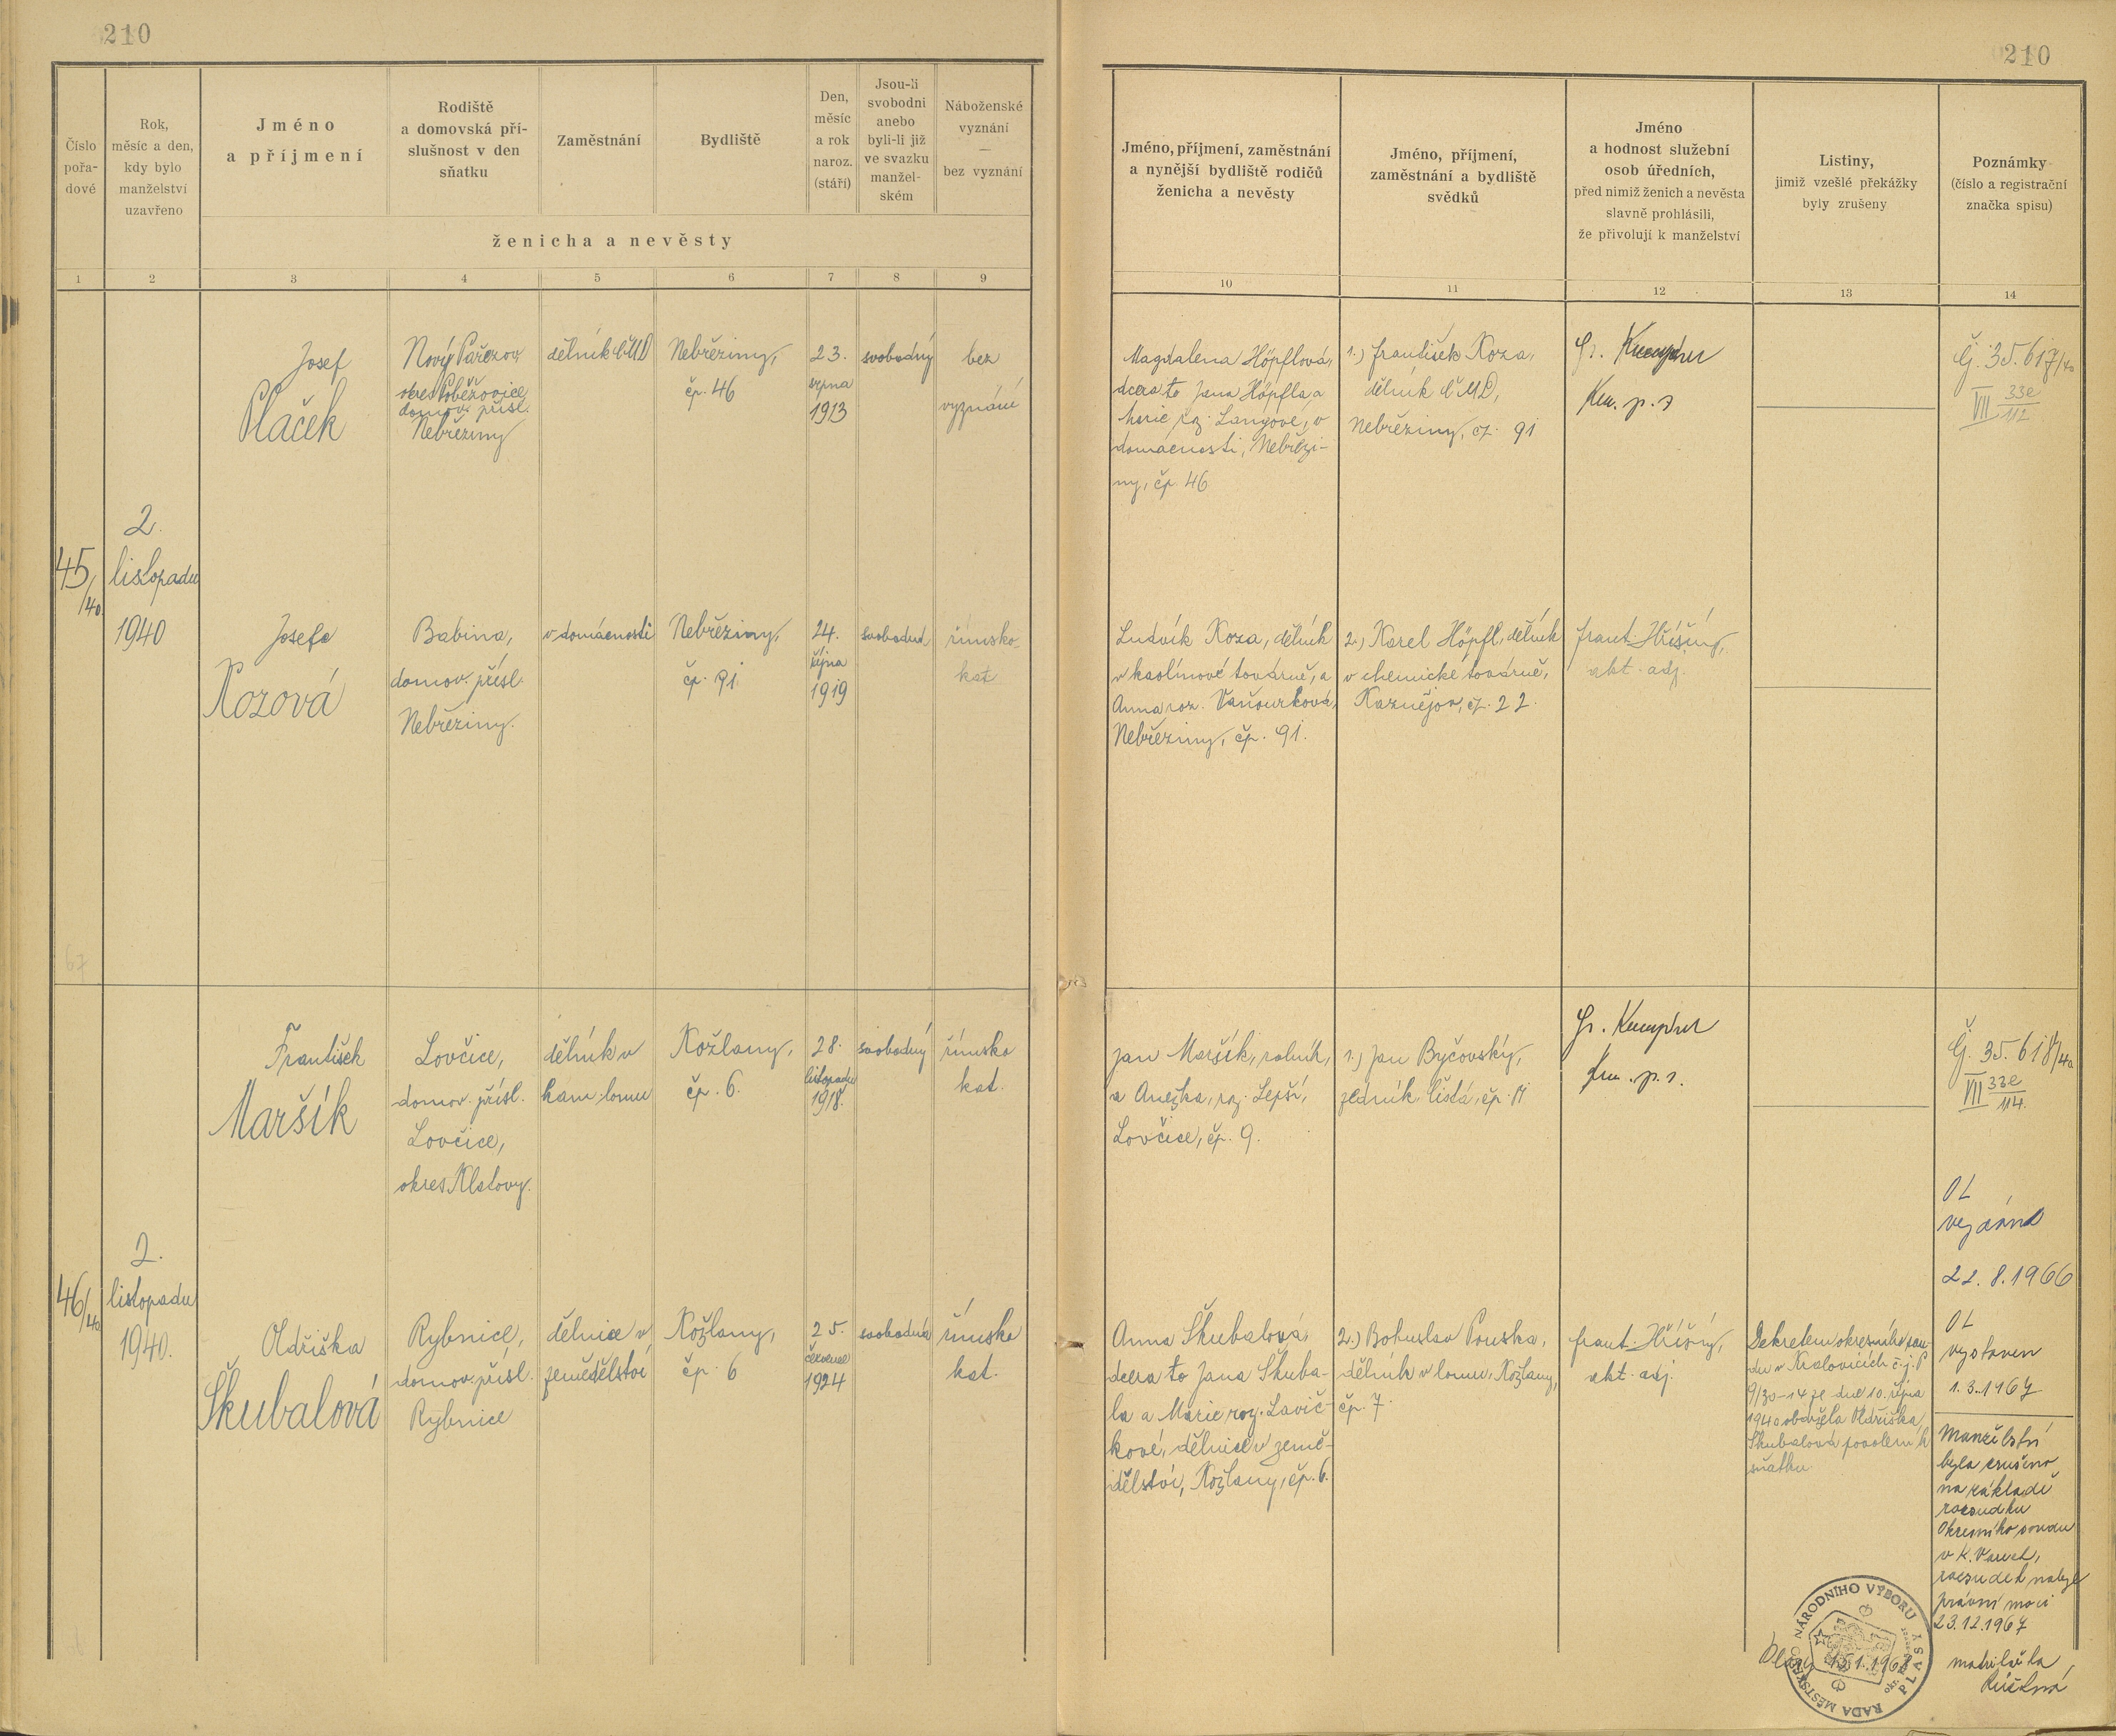 210
210
Číslo
pořa-
dové
Rok,
měsíc a den,
kdy bylo
manželství
uzavřeno
Jméno
a příjmení
Rodiště
a domovská pří-
slušnost v den
sňatku
Zaměstnání
Bydliště
Den,
měsíc
a rok
naroz.
(stáří)
Jsou-li
svobodni
anebo
byli-li již
ve svazku
manžel-
ském
Náboženské
vyznání
—
bez vyznání
ženicha a nevěsty
Jméno, příjmení, zaměstnání
a nynější bydliště rodičů
ženicha a nevěsty
Jméno, příjmení,
zaměstnání a bydliště
svědků
Jméno
a hodnost služební
osob úředních,
před nimiž ženich a nevěsta
slavně prohlásili,
že přivolují k manželství
Listiny,
jimiž vzešlé překážky
byly zrušeny
Poznámky
(číslo a registrační
značka spisu)
1 2 3 4 5 6 7 8 9 10 11 12 13 14
45/40
2.
listopadu
1940
Josef
Plaček
Nový Pařezov
okres Poběžovice
domov. přísl.
Nebřeziny
dělník ČMD
Nebřeziny,
čp. 46
23.
srpna
1913
svobodný
bez
vyznání
Magdalena Höpflová,
dcera to Jana Höpfla a
Marie roz. Langové, v
domácnosti, Nebřezi-
ny, čp. 46
1.) František Koza,
dělník ČMD,
Nebřeziny, čp. 91
Josefa
Kozová
Babina,
domov. přísl.
Nebřeziny.
v domácnosti
Nebřeziny,
čp. 91.
24.
října
1919
svobodná
římsko-
kat
Ludvík Koza, dělník
v kaolínové továrně, a
Anna roz. Vaňourková,
Nebřeziny, čp. 91.
2.) Karel Höpfl, dělník
v chemické továrně,
Kaznějov, čp. 22.
frant. Hříšný,
akt. adj.
Čj. 35.617/40
VII 33e
112
67
46/40
2.
listopadu
1940.
František
Maršík
Lovčice,
domov. přísl.
Lovčice,
okres Klatovy.
dělník v
kam. lomu
Kožlany,
čp. 6.
28.
listopadu
1918.
svobodný
římsko
kat.
Jan Maršík, rolník,
a Anežka, roz. Lepší,
Lovčice, čp. 9.
1.) Jan Byčovský,
zedník
Čj. 35.618/40
VII 33e
114.
Oldřiška
Škubalová
Rybnice,
domov. přísl.
Rybnice
dělnice v
zemědělství
Kožlany,
čp. 6
25.
července
1924
svobodná
římsko
kat.
Anna Škubalová,
dcera to Jana Škuba-
la a Marie roz. Lavič-
kové, dělnice v země-
dělství, Kožlany, čp. 6.
2.) Bohuslav Pouska,
dělník v lomu, Kožlany,
čp. 7.
frant. Hříšný,
akt. adj.
Dekretem okresního sou-
du v Kralovicích č.j. P
9/30-14 ze dne 10. října
1940 obdržela Oldřiška
Škubalová povolení k
sňatku
OL
vydán
22.8.1966
OL
vystaven
1.3.1967
Manželství
bylo zrušeno
na základě
rozsudku
Okresního soudu
v K. Varech,
rozsudek nabyl
právní moci
23.12.1967
matrikářka
RADA MĚSTSKÉHO NÁRODNÍHO VÝBORU
PLASY